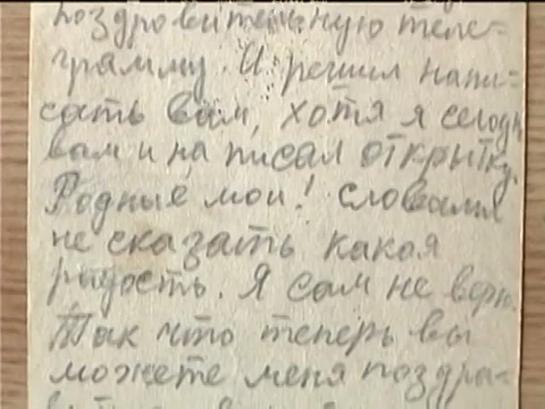 поздровительную теле=
грамму. И решил напи=
сать вам, хотя я сегодн
вам и на писал открытку.
Родные мои! словами
не сказать какая
радость. Я сам не верю.
Так что теперь вы
можете меня поздра=